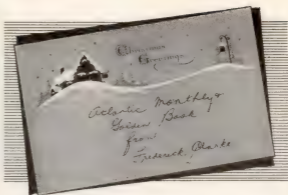 Christmas
Greetings
Atlantic Monthly &
Golden Book
from
Frederick Clarke